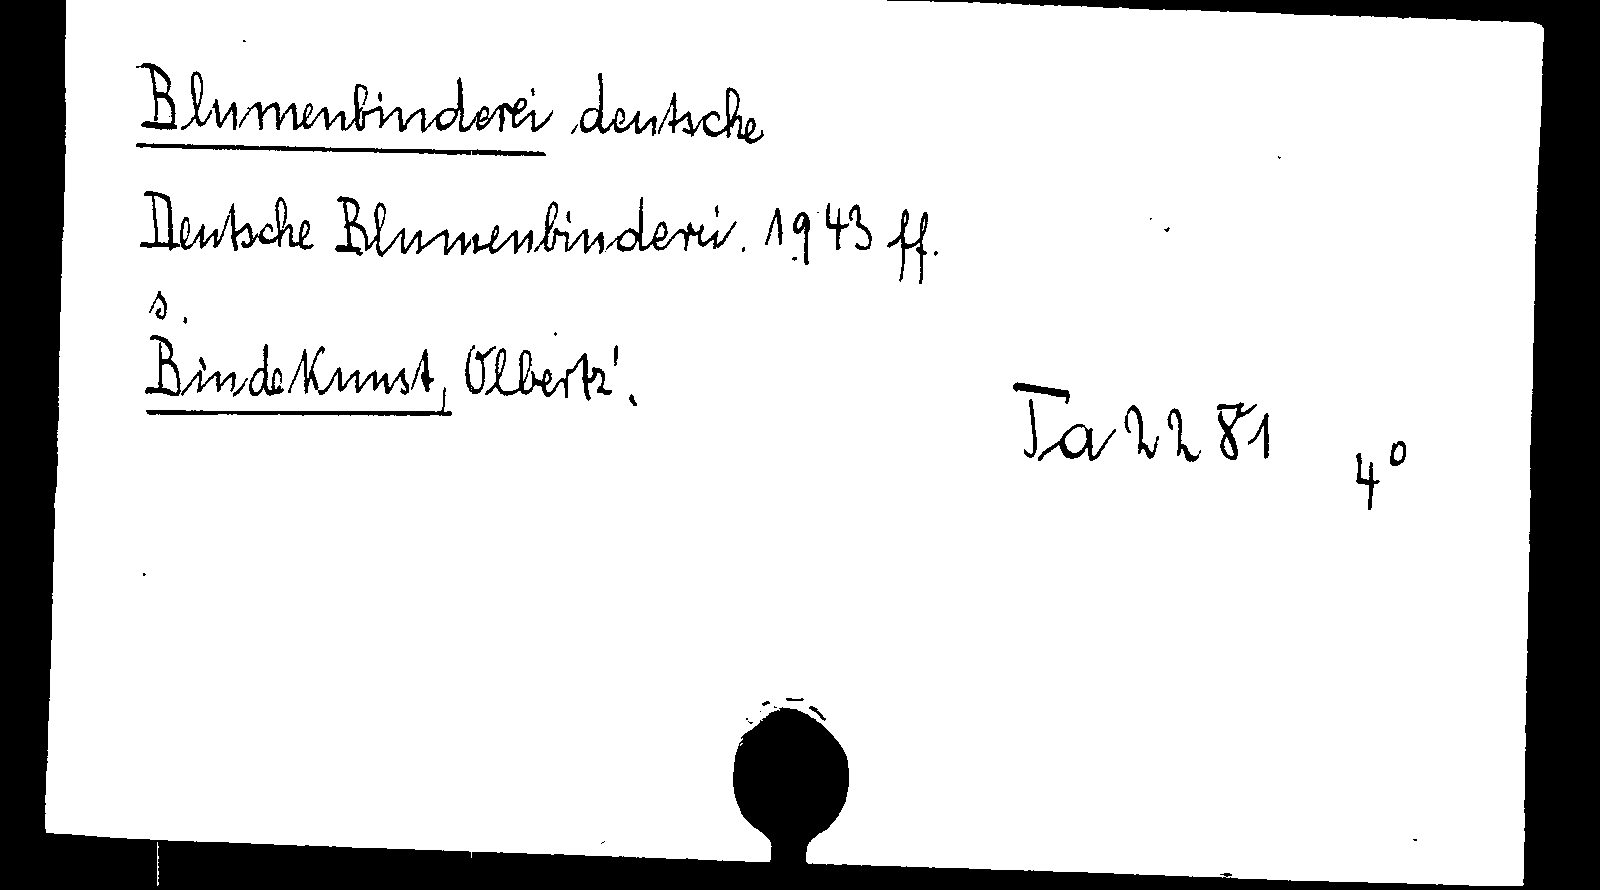 Blumenbinderei, deutsche
Deutsche Blumenbinderei. 1943 ff.
s.
Bindekunst, Olbertz'.
Ta 2281 4°